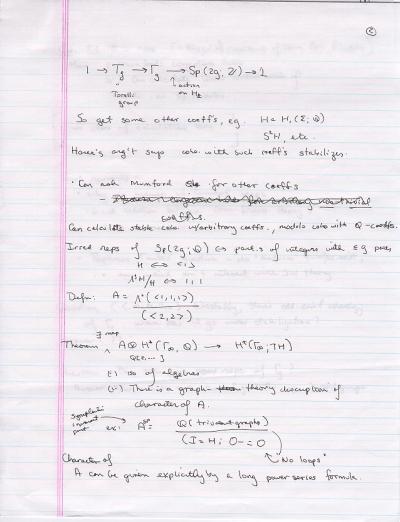 ②
1 → T_g → Γ_g → Sp(2g, ℤ) → 1
" Torelli group
↑ action on H_1
So get some other coeff's, e.g. H = H_1(Σ; ℚ)
S^kH, etc.
Harer's arg't says coho. with such coeff's stabilizes.
• Can ask Mumford for other coeffs
Can calculate stable coho. w/ arbitrary coeffs., modulo coho with ℚ-coeffs.
Irred reps of Sp(2g; ℚ) ↔ part.s of integers with ≤ g parts
H ↔ <1>
Λ²H/H ↔ 1,1
Defn: A = Λ*(<1,1,1>) / (<2,2>)
Theorem ∃ map A ⊗ H*(Γ_∞, ℚ) → H*(Γ_∞; TH)
(i) iso of algebras
(ii) There is a graph-theory description of
character of A.
Symplectic invariant part ex: A^Sp = ℚ(trivalent graphs) / (I = H; O- = 0)
↖ "No loops"
Character of
A can be given explicitly by a long power series formula.